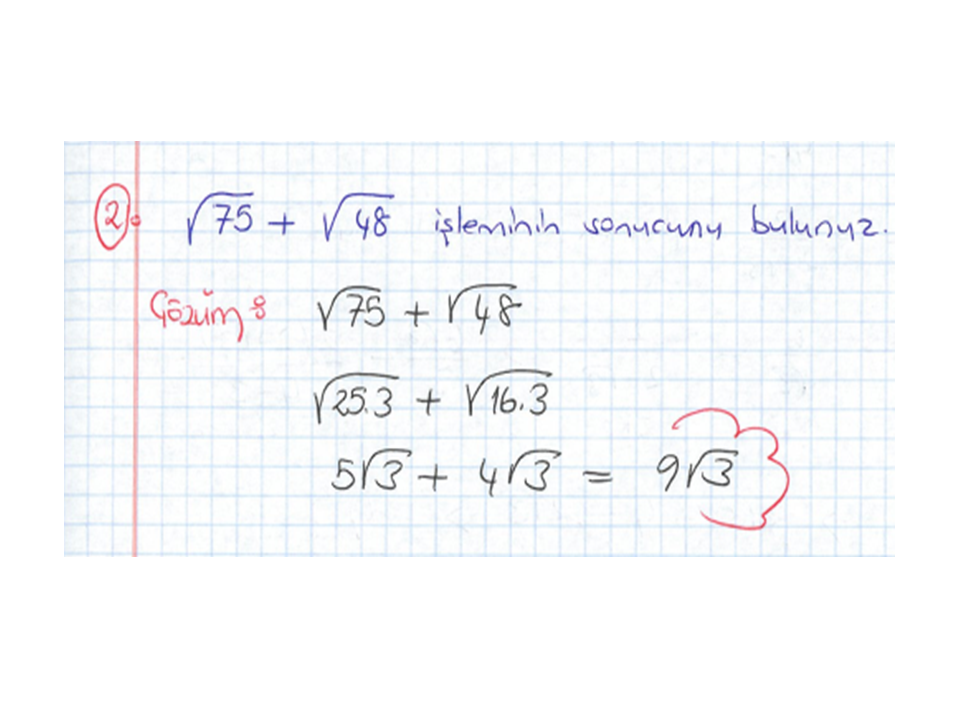 2. √75 + √48 işleminin sonucunu bulunuz.
Çözüm: √75 + √48
√25.3 + √16.3
5√3 + 4√3 = 9√3